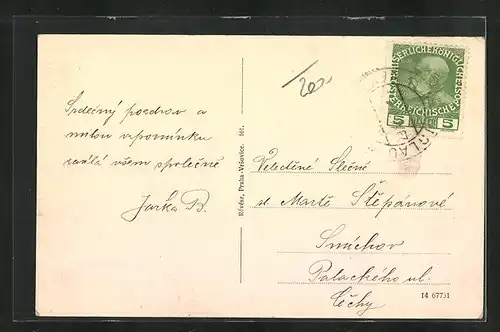 Srdečný pozdrav a
milou vzpomínku
zasílá všem společně
Jarka B.
Révész, Praha-Vršovice.
KAISERLICHE KÖNIGLICHE
ÖSTERREICHISCHE POST
5 5
IGLAU
Velectěné Slečně
sl. Martě Štěpánové
Smíchov
Palackého ul.
Čechy
14 67731